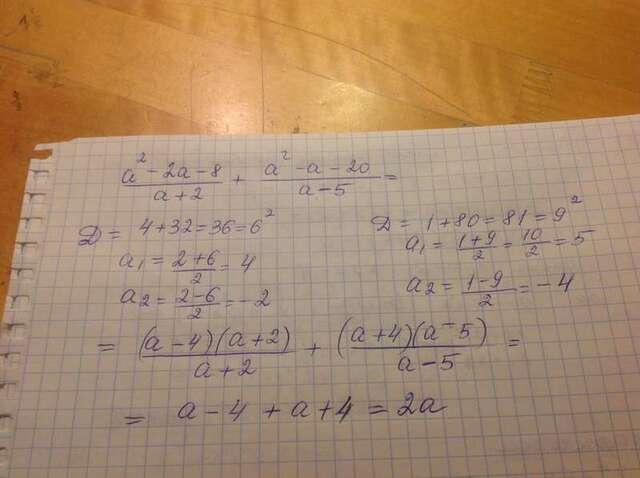 (a² - 2a - 8)/(a + 2) + (a² - a - 20)/(a - 5) =
D = 4 + 32 = 36 = 6²
a₁ = (2 + 6)/2 = 4
a₂ = (2 - 6)/2 = -2
D = 1 + 80 = 81 = 9²
a₁ = (1 + 9)/2 = 10/2 = 5
a₂ = (1 - 9)/2 = -4
= (a - 4)(a + 2)/(a + 2) + (a + 4)(a - 5)/(a - 5) =
= a - 4 + a + 4 = 2a